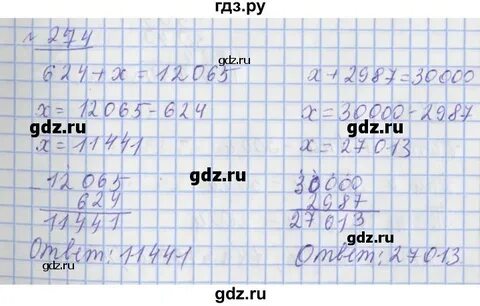 гдз.ру
№ 274
624 + x = 12065
x = 12065 - 624
x = 11441
12065
624
11441
Ответ: 11441
x + 2987 = 30000
x = 30000 - 2987
x = 27013
30000
2987
27013
Ответ: 27013
gdz.ru
gdz.ru
gdz.ru
gdz.ru
gdz.ru
gdz.ru
gdz.ru
gdz.ru